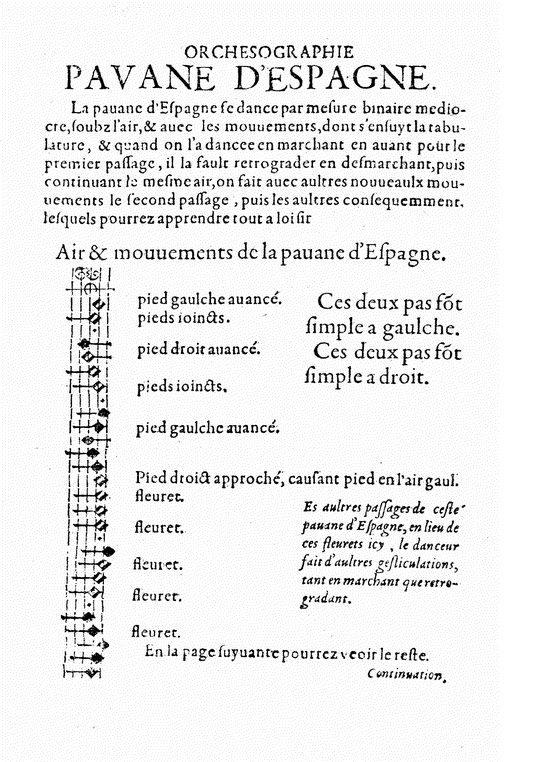 ORCHESOGRAPHIE
PAVANE D'ESPAGNE.
La pauane d'Eſpagne ſe dance par meſure binaire medio-
cre, ſoubz l'air, & auec les mouuements, dont s'enſuyt la tabu-
lature, & quand on l'a dancee en marchant en auant pour le
premier paſſage, il la fault retrograder en deſmarchant, puis
continuant le meſme air, on fait auec aultres nouueaulx mou-
uements le ſecond paſſage, puis les aultres conſequemment,
leſquels pourrez apprendre tout a loiſir
Air & mouuements de la pauane d'Eſpagne.
pied gaulche auancé.
pieds ioincts.
pied droit auancé.
pieds ioincts.
pied gaulche auancé.
Ces deux pas ſõt
ſimple a gaulche.
Ces deux pas ſõt
ſimple a droit.
Pied droict approché, cauſant pied en l'air gaul.
fleuret.
fleuret.
fleuret.
fleuret.
fleuret.
Es aultres paſſages de ceſte
pauane d'Eſpagne, en lieu de
ces fleurets icy, le danceur
fait d'aultres geſticulations,
tant en marchant que retro-
gradant.
En la page ſuyuante pourrez veoir le reſte.
Continuation.